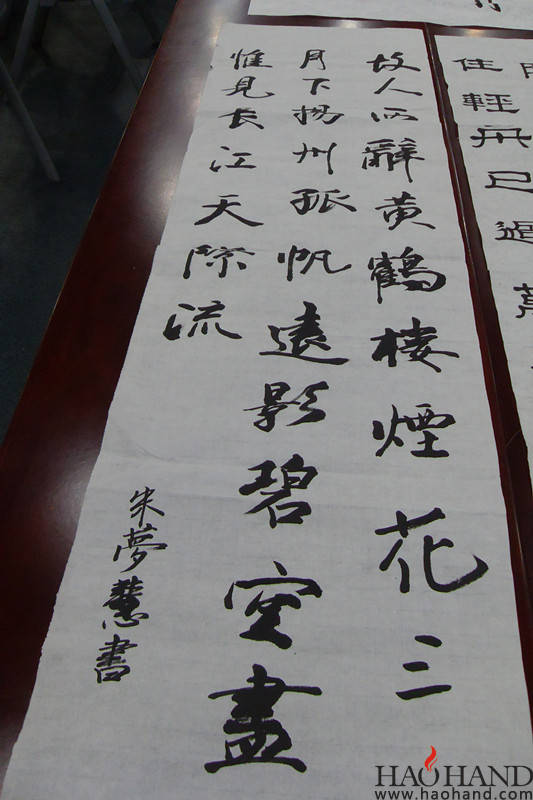 住輕舟已過萬
故人西辭黄鶴樓煙花三
月下揚州孤帆遠影碧空盡
惟見長江天際流
朱夢慧書
HAOHAND
www.haohand.com